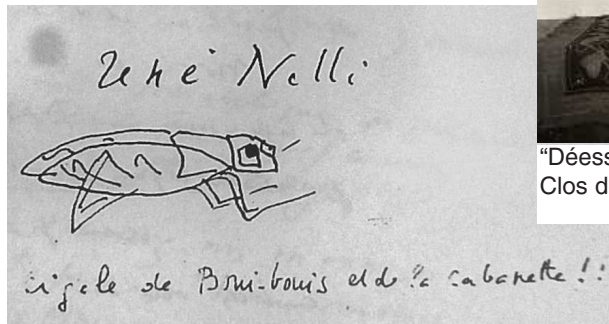 René Nelli
“Déess
Clos d
cigale de Boui-bouis et de la cabanette !!